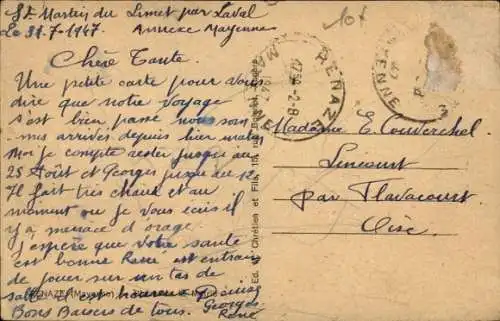 St Martin du Limet par Laval
Le 31.7.1947 Annexe Mayenne
10f
Chère Tante.
Une petite carte pour vous
dire que notre voyage
s'est bien passé nous som
mes arrivés depuis hier matin
Moi je compte rester jusqu'au
25 Août et Georges jusqu'au 12
Il fait très chaud et au
moment ou je vous ecris il
y a menace d'orage.
J'espère que votre santé
est bonne René est entrain
de jouer sur un tas de
sable il est heureux
Bons Baisers de tous. Georges
René
RENAZE
MAYENNE
Madame E. Couverchel
Lincourt
par Flavacourt
Oise
Ed. Chrétien et Fils, 10, r.
RENAZE (Mayenne)